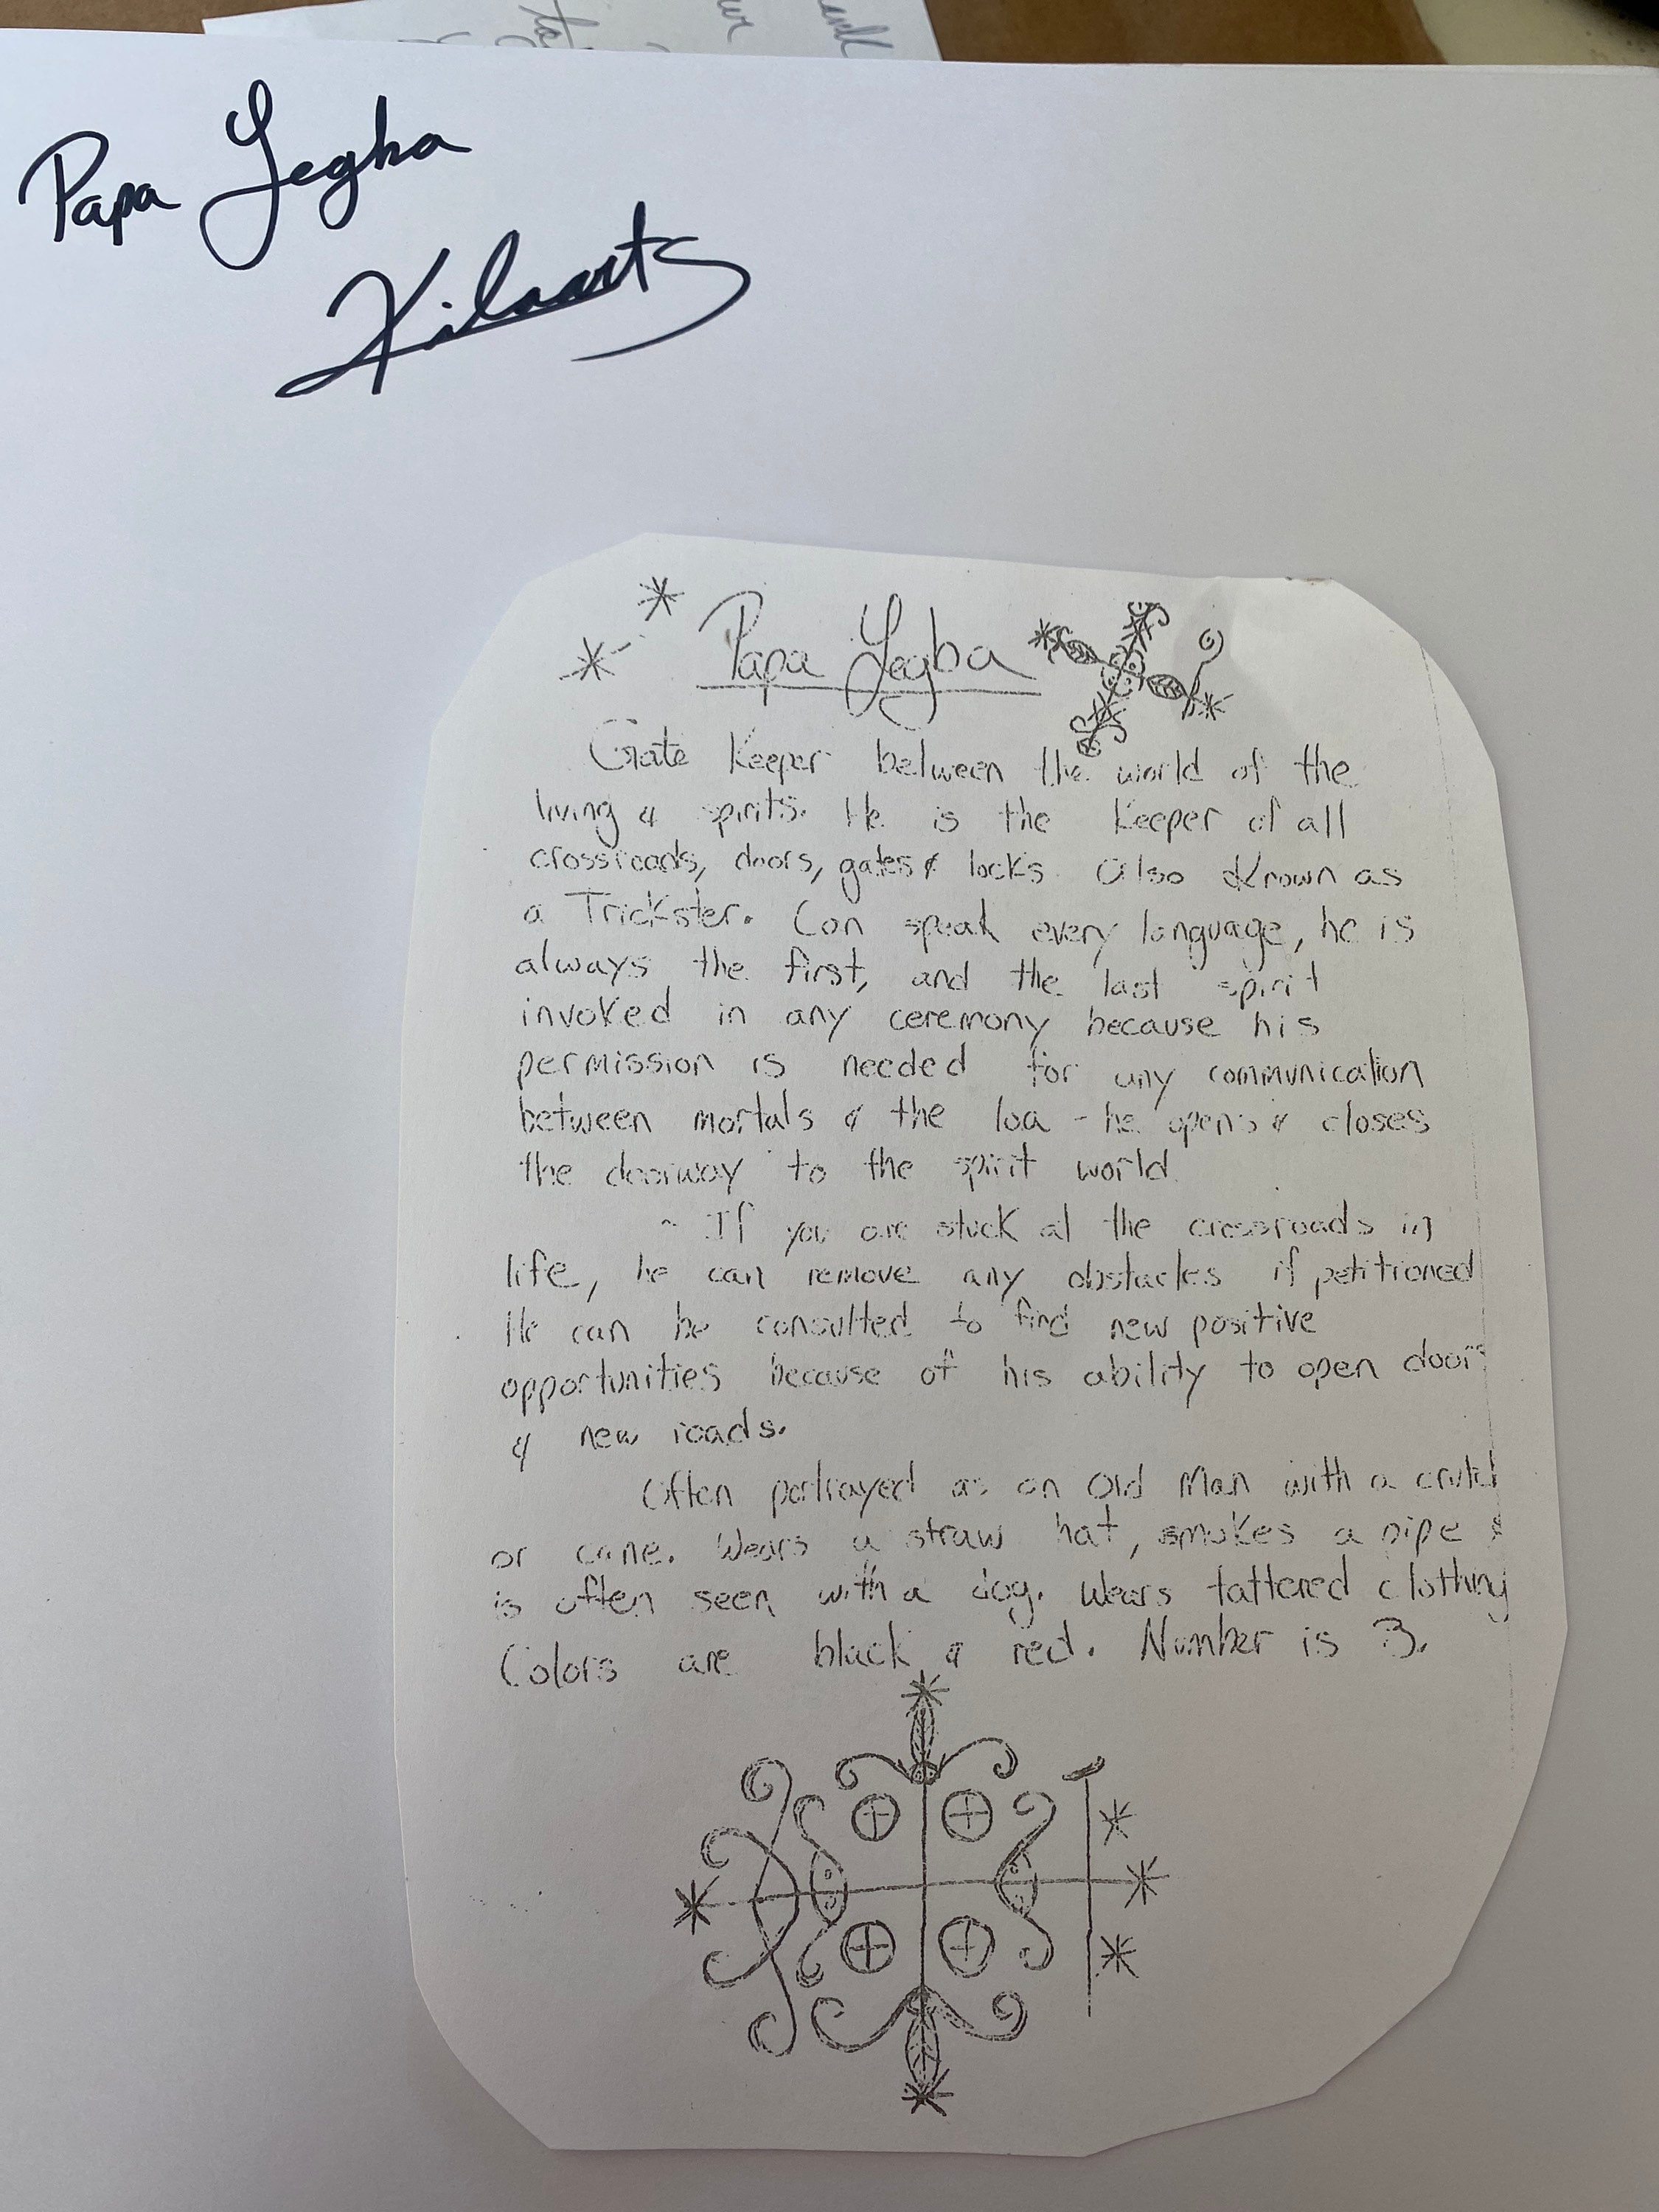 Papa Legba
Kilaarts
Papa Legba
Gate Keeper between the world of the
living & spirits. He is the Keeper of all
crossroads, doors, gates & locks. Also Known as
a Trickster. Can speak every language, he is
always the first, and the last spirit
invoked in any ceremony because his
permission is needed for any communication
between mortals & the loa - he opens & closes
the doorway to the spirit world
~ If you are stuck at the crossroads in
life, he can remove any obstacles if petitioned
He can be consulted to find new positive
opportunities because of his ability to open doors
& new roads.
Often portrayed as an Old Man with a crutch
or cane. Wears a straw hat, smokes a pipe &
is often seen with a dog. Wears tattered clothing
Colors are black & red. Number is 3.